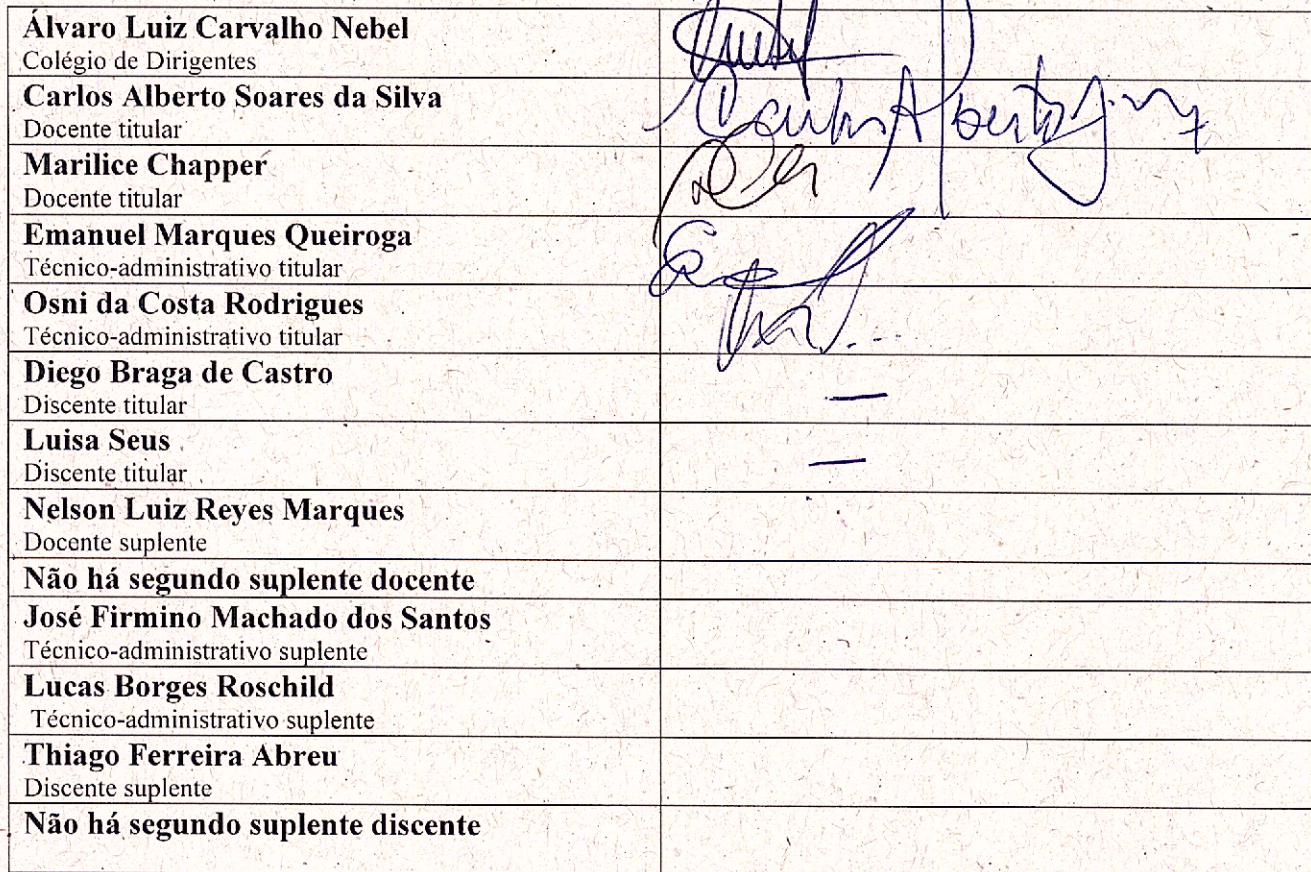 Álvaro Luiz Carvalho Nebel
Colégio de Dirigentes
Carlos Alberto Soares da Silva
Docente titular
Marilice Chapper
Docente titular
Emanuel Marques Queiroga
Técnico-administrativo titular
Osni da Costa Rodrigues
Técnico-administrativo titular
Diego Braga de Castro
Discente titular
—
Luisa Seus
Discente titular
—
Nelson Luiz Reyes Marques
Docente suplente
Não há segundo suplente docente
José Firmino Machado dos Santos
Técnico-administrativo suplente
Lucas Borges Roschild
Técnico-administrativo suplente
Thiago Ferreira Abreu
Discente suplente
Não há segundo suplente discente